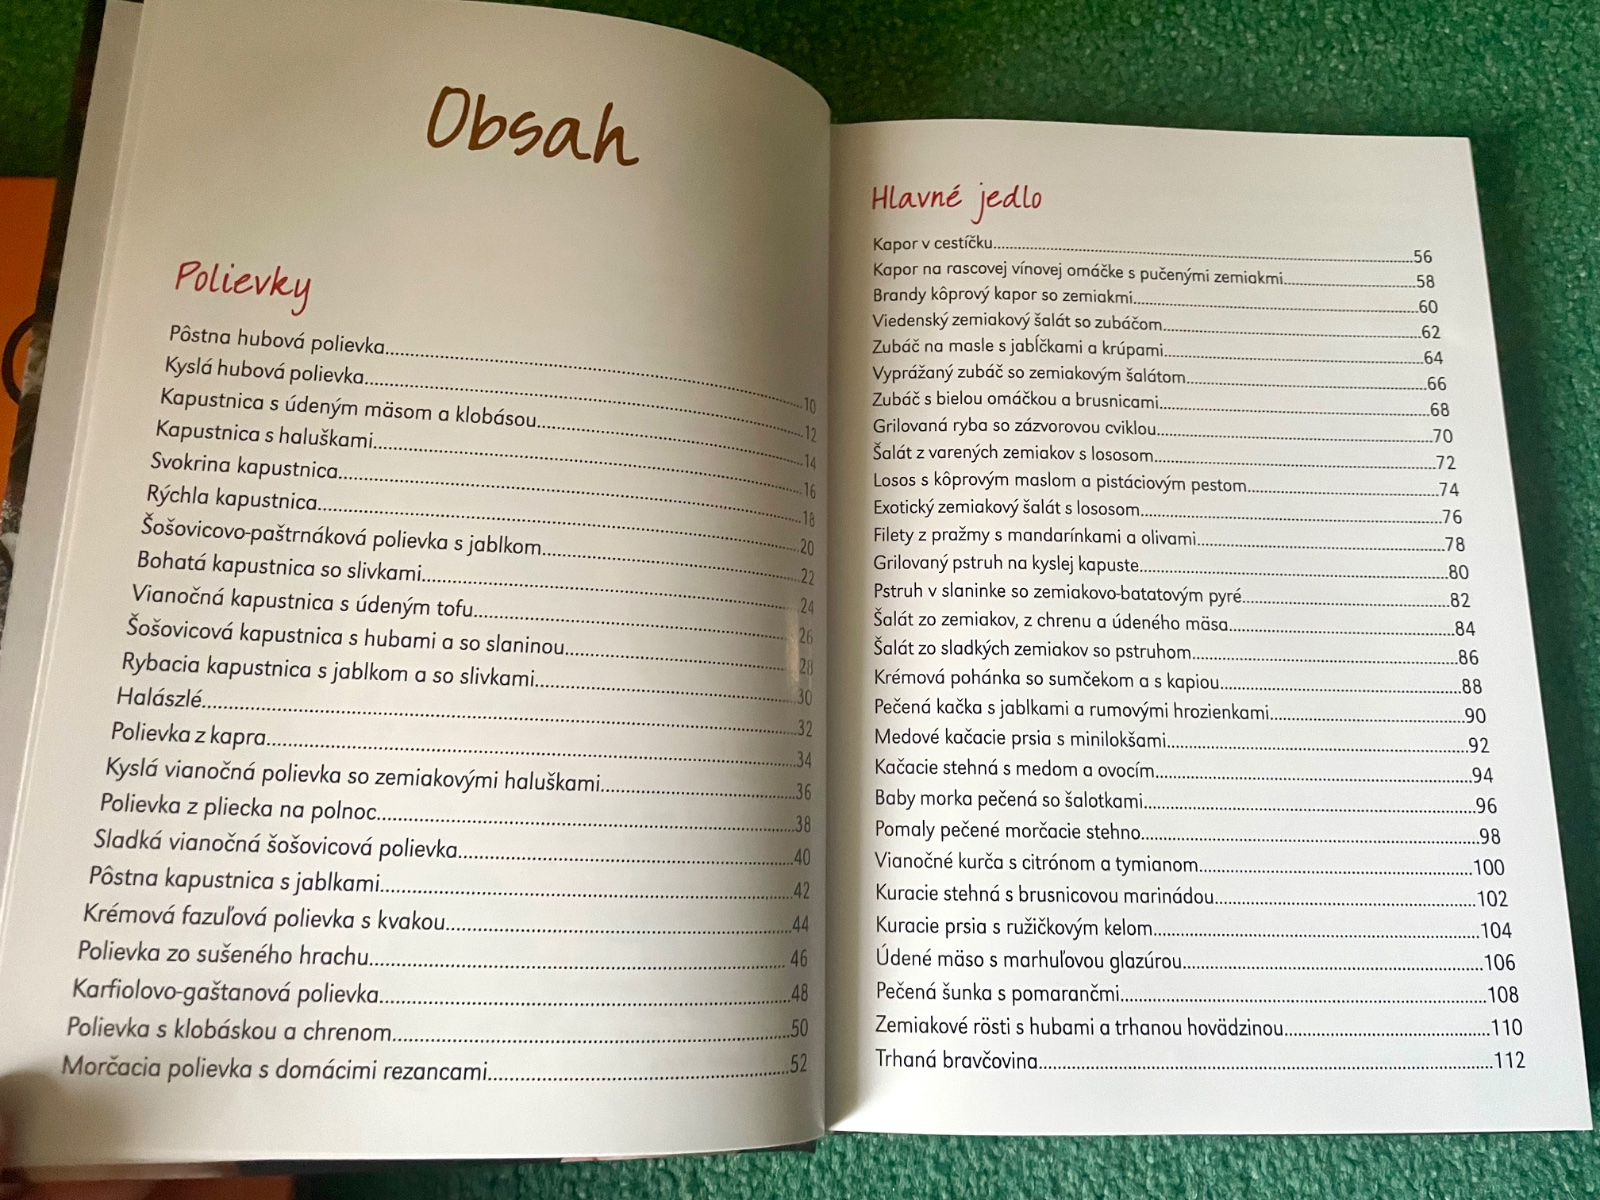 Obsah
Polievky
Pôstna hubová polievka........10
Kyslá hubová polievka........12
Kapustnica s údeným mäsom a klobásou........14
Kapustnica s haluškami........16
Svokrina kapustnica........18
Rýchla kapustnica........20
Šošovicovo-paštrnáková polievka s jablkom........22
Bohatá kapustnica so slivkami........24
Vianočná kapustnica s údeným tofu........26
Šošovicová kapustnica s hubami a so slaninou........28
Rybacia kapustnica s jablkom a so slivkami........30
Halászlé........32
Polievka z kapra........34
Kyslá vianočná polievka so zemiakovými haluškami........36
Polievka z pliecka na polnoc........38
Sladká vianočná šošovicová polievka........40
Pôstna kapustnica s jablkami........42
Krémová fazuľová polievka s kvakou........44
Polievka zo sušeného hrachu........46
Karfiolovo-gaštanová polievka........48
Polievka s klobáskou a chrenom........50
Morčacia polievka s domácimi rezancami........52
Hlavné jedlo
Kapor v cestíčku........56
Kapor na rascovej vínovej omáčke s pučenými zemiakmi........58
Brandy kôprový kapor so zemiakmi........60
Viedenský zemiakový šalát so zubáčom........62
Zubáč na masle s jabĺčkami a krúpami........64
Vyprážaný zubáč so zemiakovým šalátom........66
Zubáč s bielou omáčkou a brusnicami........68
Grilovaná ryba so zázvorovou cviklou........70
Šalát z varených zemiakov s lososom........72
Losos s kôprovým maslom a pistáciovým pestom........74
Exotický zemiakový šalát s lososom........76
Filety z pražmy s mandarínkami a olivami........78
Grilovaný pstruh na kyslej kapuste........80
Pstruh v slaninke so zemiakovo-batatovým pyré........82
Šalát zo zemiakov, z chrenu a údeného mäsa........84
Šalát zo sladkých zemiakov so pstruhom........86
Krémová pohánka so sumčekom a s kapiou........88
Pečená kačka s jablkami a rumovými hrozienkami........90
Medové kačacie prsia s minilokšami........92
Kačacie stehná s medom a ovocím........94
Baby morka pečená so šalotkami........96
Pomaly pečené morčacie stehno........98
Vianočné kurča s citrónom a tymianom........100
Kuracie stehná s brusnicovou marinádou........102
Kuracie prsia s ružičkovým kelom........104
Údené mäso s marhuľovou glazúrou........106
Pečená šunka s pomarančmi........108
Zemiakové rösti s hubami a trhanou hovädzinou........110
Trhaná bravčovina........112